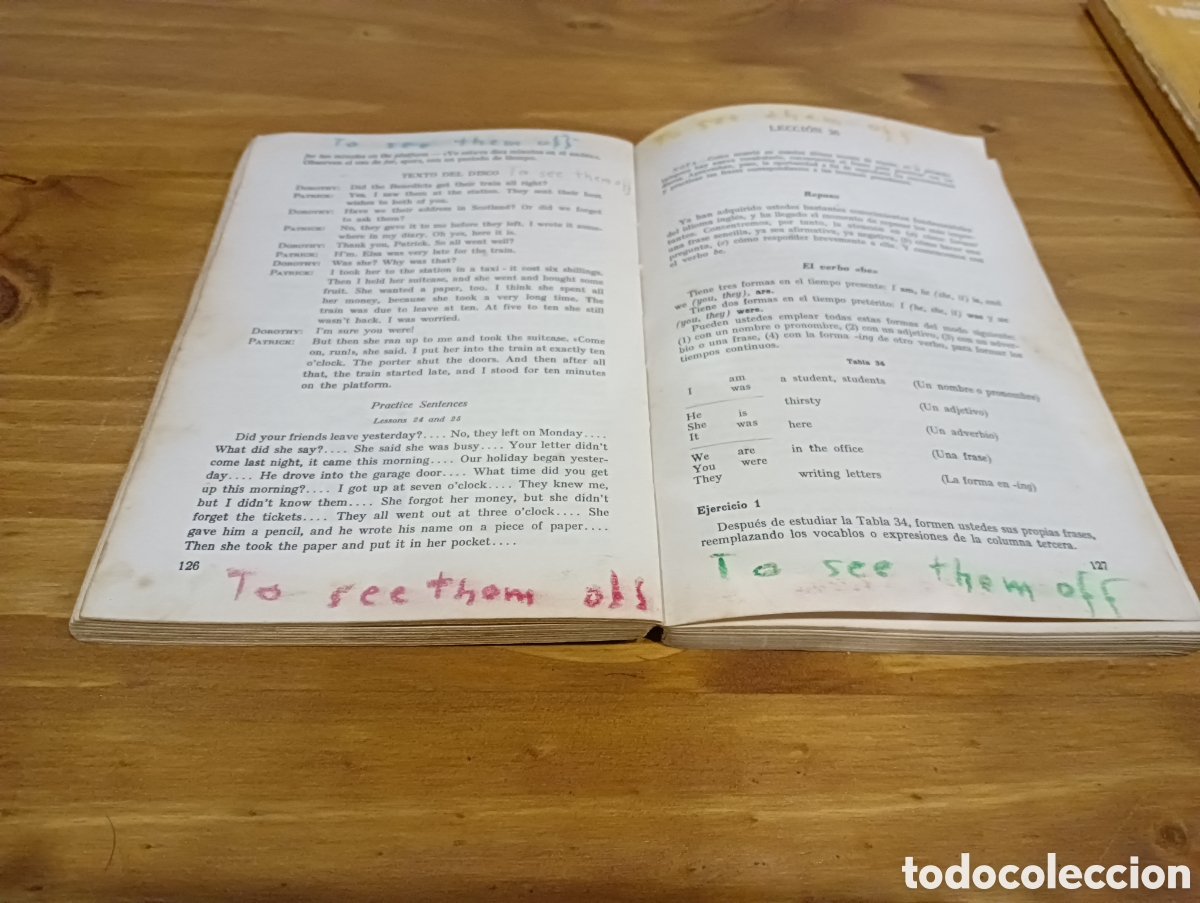 To see them off
for ten minutes on the platform
Observen el uso de for, aquí, con un período de tiempo.
TEXTO DEL DISCO To see them off
DOROTHY: Did the Benedicts get their train all right?
PATRICK: Yes, I saw them at the station. They sent their best
wishes to both of you.
DOROTHY: Have we their address in Scotland? Or did we forget
to ask them?
PATRICK: No, they gave it to me before they left. I wrote it some-
where in my diary. Oh yes, here it is.
DOROTHY: Thank you, Patrick. So all went well?
PATRICK: H'm. Elsa was very late for the train.
DOROTHY: Was she? Why was that?
PATRICK: I took her to the station in a taxi - it cost six shillings.
Then I held her suitcase, and she went and bought some
fruit. She wanted a paper, too. I think she spent all
her money, because she took a very long time. The
train was due to leave at ten. At five to ten she still
wasn't back. I was worried.
DOROTHY: I'm sure you were!
PATRICK: But then she ran up to me and took the suitcase. «Come
on, run!», she said. I put her into the train at exactly ten
o'clock. The porter shut the doors. And then after all
that, the train started late, and I stood for ten minutes
on the platform.
Practice Sentences
Lessons 24 and 25
Did your friends leave yesterday?.... No, they left on Monday....
What did she say?.... She said she was busy.... Your letter didn't
come last night, it came this morning.... Our holiday began yester-
day.... He drove into the garage door.... What time did you get
up this morning?.... I got up at seven o'clock.... They knew me,
but I didn't know them.... She forgot her money, but she didn't
forget the tickets.... They all went out at three o'clock.... She
gave him a pencil, and he wrote his name on a piece of paper....
Then she took the paper and put it in her pocket....
126
To see them off
To see them off
LECCIÓN 26
Repaso
Ya han adquirido ustedes bastantes conocimientos fundamentales
del idioma inglés, y ha llegado el momento de repasar los más impor-
tantes. Concentremos, por tanto, la atención en (a) cómo formar
una frase sencilla, ya sea afirmativa, ya negativa, (b) cómo hacer una
pregunta, (c) cómo responder brevemente a ella. Y comencemos con
el verbo be.
El verbo «be»
Tiene tres formas en el tiempo presente: I am, he (she, it) is, and
we (you, they), are.
Tiene dos formas en el tiempo pretérito: I (he, she, it) was y we
(you, they) were.
Pueden ustedes emplear todas estas formas del modo siguiente:
(1) con un nombre o pronombre, (2) con un adjetivo, (3) con un adver-
bio o una frase, (4) con la forma -ing de otro verbo, para formar los
tiempos continuos.
Tabla 34
I am was a student, students (Un nombre o pronombre)
thirsty (Un adjetivo)
He She It is was here (Un adverbio)
We You They are were in the office (Una frase)
writing letters (La forma en -ing)
Ejercicio 1
Después de estudiar la Tabla 34, formen ustedes sus propias frases,
reemplazando los vocablos o expresiones de la columna tercera.
127
To see them off
todocoleccion